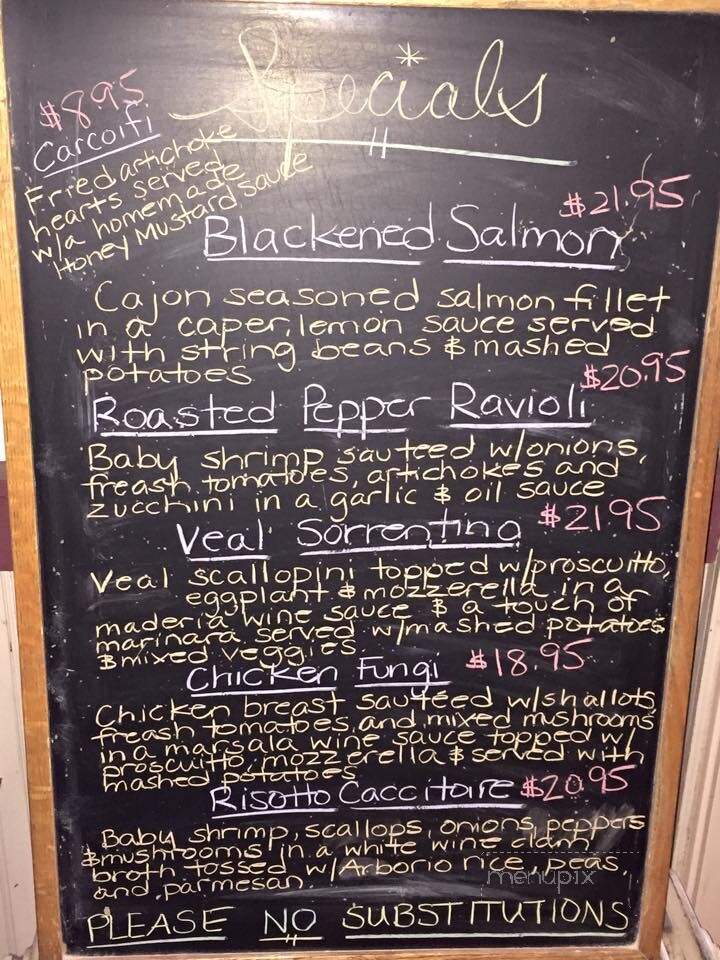 Specials
$8.95
Carcoifi
Fried artichoke
hearts served
w/a homemade
Honey Mustard Sauce
$21.95
Blackened Salmon
Cajon seasoned salmon fillet
in a caper, lemon sauce served
with string beans & mashed
potatoes
$20.95
Roasted Pepper Ravioli
Baby shrimp sauteed w/onions,
freash tomatoes, artichokes and
zucchini in a garlic & oil sauce
$21.95
Veal Sorrentino
Veal scallopini topped w/proscuitto,
eggplant & mozzerella in a
maderia wine sauce & a touch of
marinara served w/mashed potatoes
& mixed veggies
Chicken Fungi $18.95
Chicken breast sauteed w/shallots,
freash tomatoes, and mixed mushrooms
in a marsala wine sauce topped w/
proscuitto, mozzerella & served with
mashed potatoes
Risotto Caccitoire $20.95
Baby shrimp, scallops, onions, peppers
& mushrooms in a white wine clam
broth tossed w/Arborio rice, peas,
and parmesan.
menupix
PLEASE NO SUBSTITUTIONS